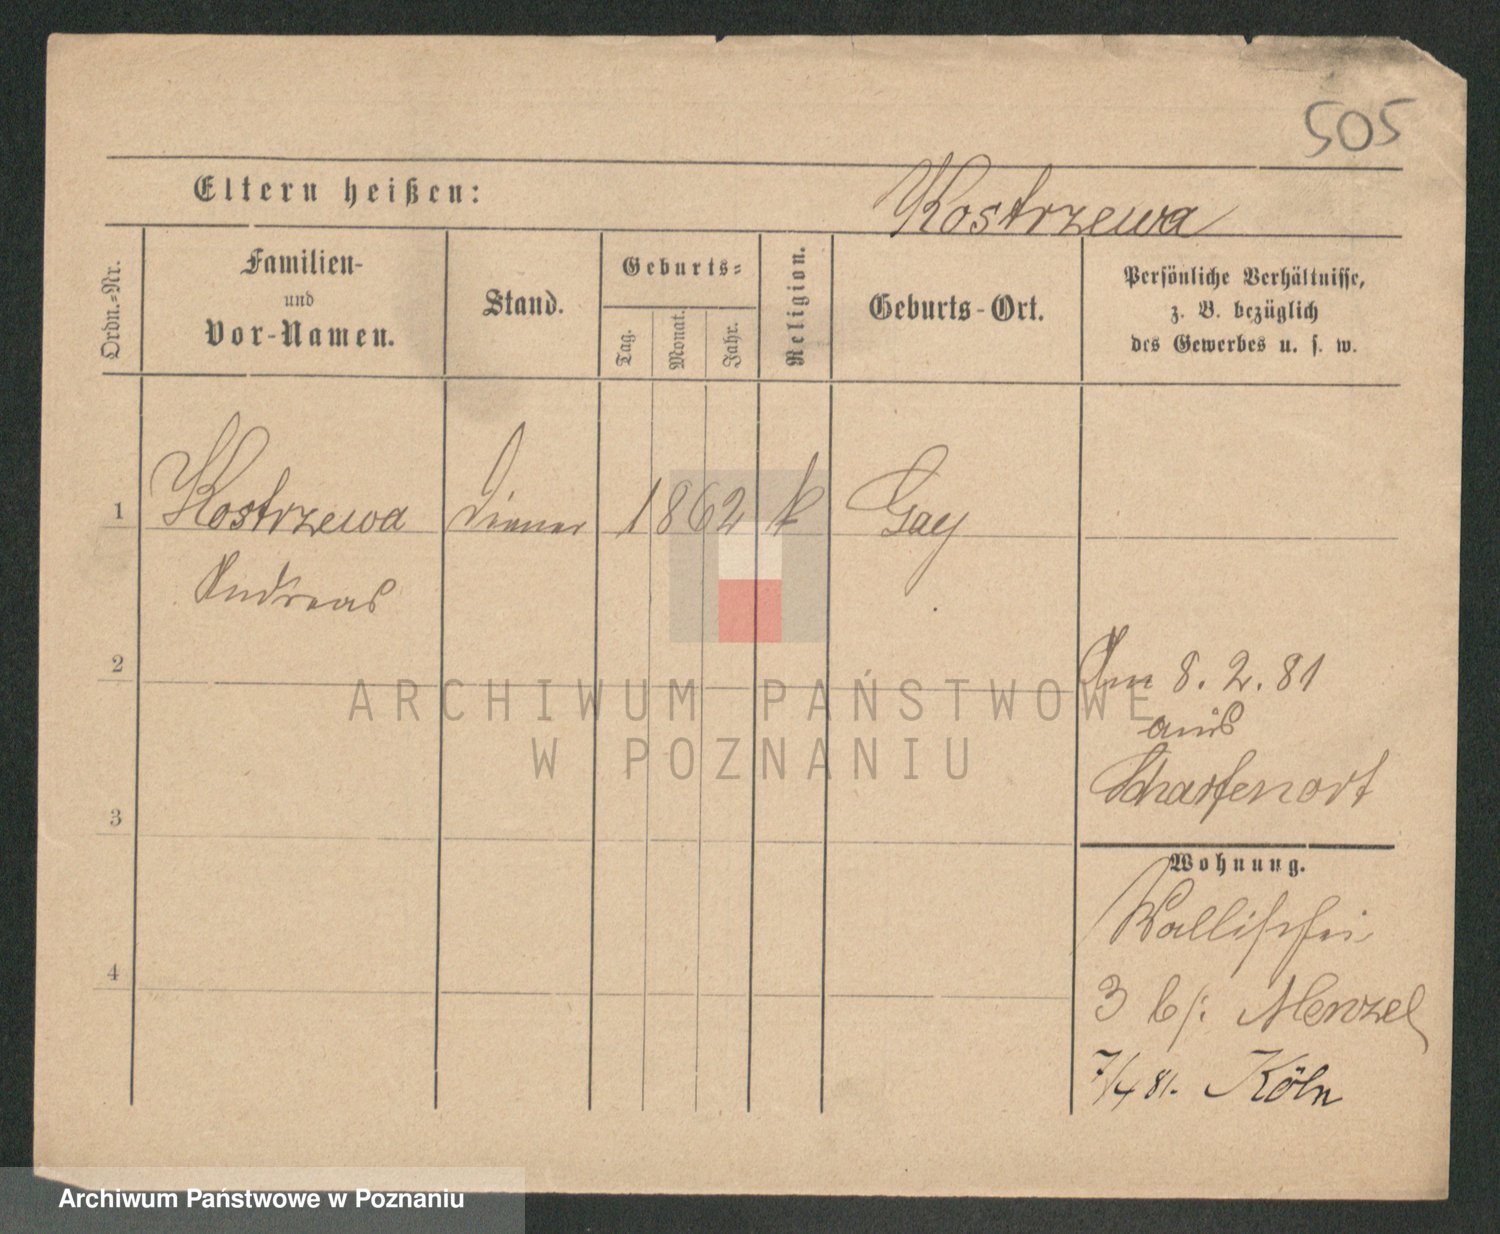 505
Eltern heißen:
Kostrzewa
Ordn.-Nr.
Familien-
und
Vor-Namen.
Stand.
Geburts-
Tag.
Monat.
Jahr.
Religion.
Geburts-Ort.
Persönliche Verhältnisse,
z. B. bezüglich
des Gewerbes u. s. w.
1 Kostrzewa Diener 1862 k Gay
Andreas
2
Am 8. 2. 81
aus
Scharfenort
ARCHIWUM PAŃSTWOWE
W POZNANIU
3
Wohnung.
Wallischei
4
3 b/: Menzel
7/4 81. Köln
Archiwum Państwowe w Poznaniu